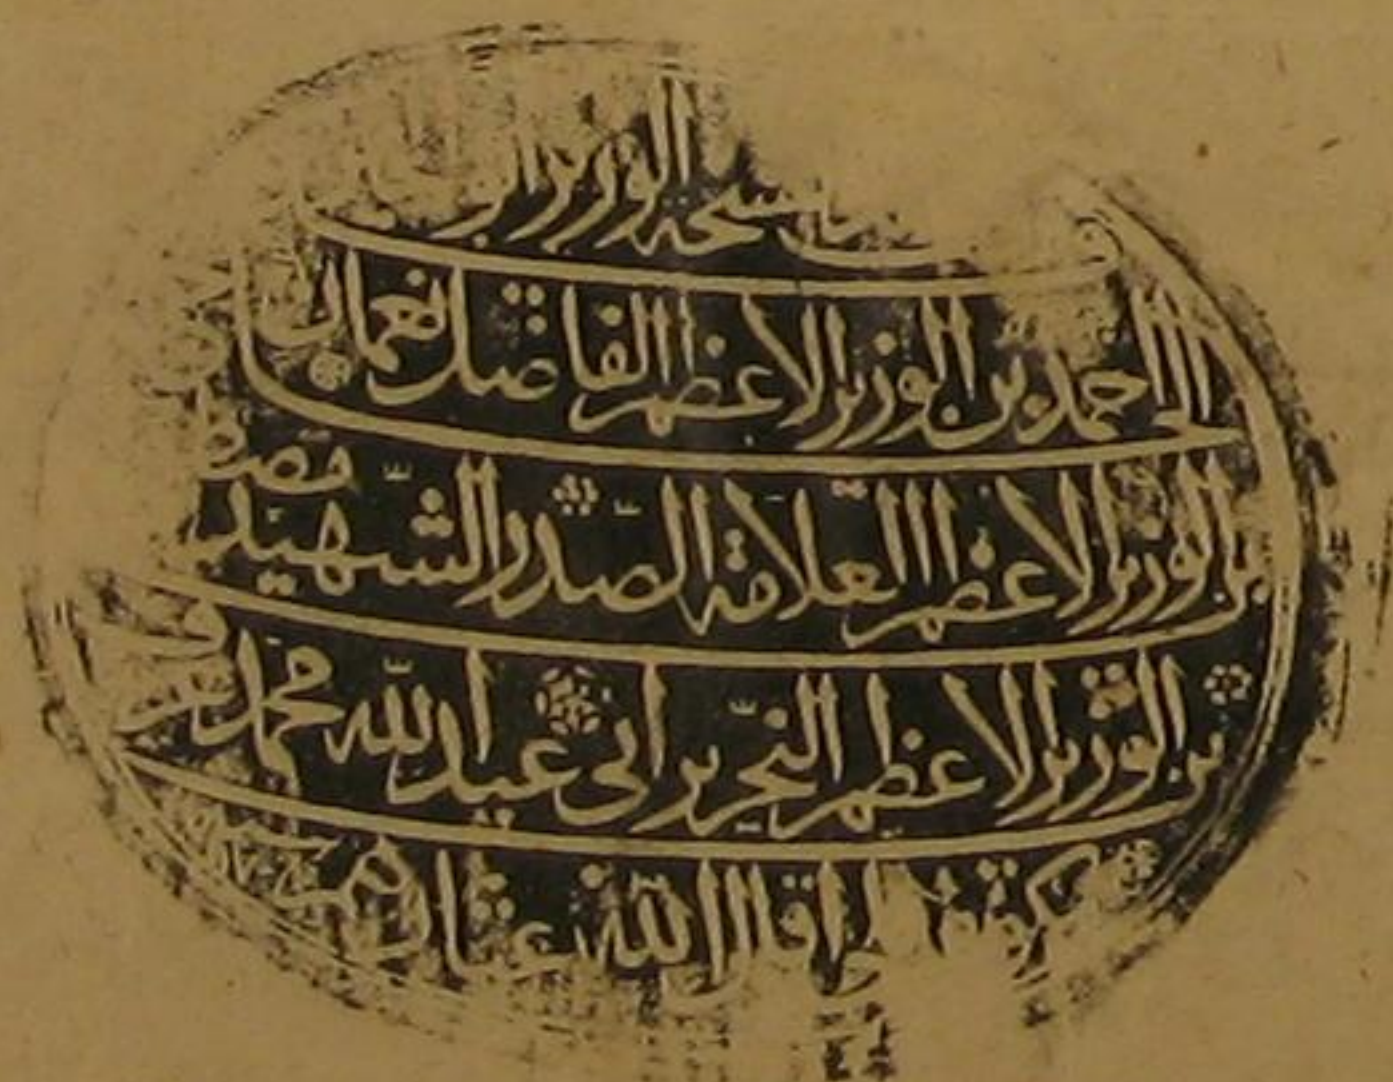 الوزير
الحاج احمد بن الوزير الاعظم الفاضل نعمان
بن الوزير الاعظم العلامة الصّدر الشّهيد مصطفى
بن الوزير الاعظم النحّرير ابي عبد الله محمد عرف
اقال الله عثارهم